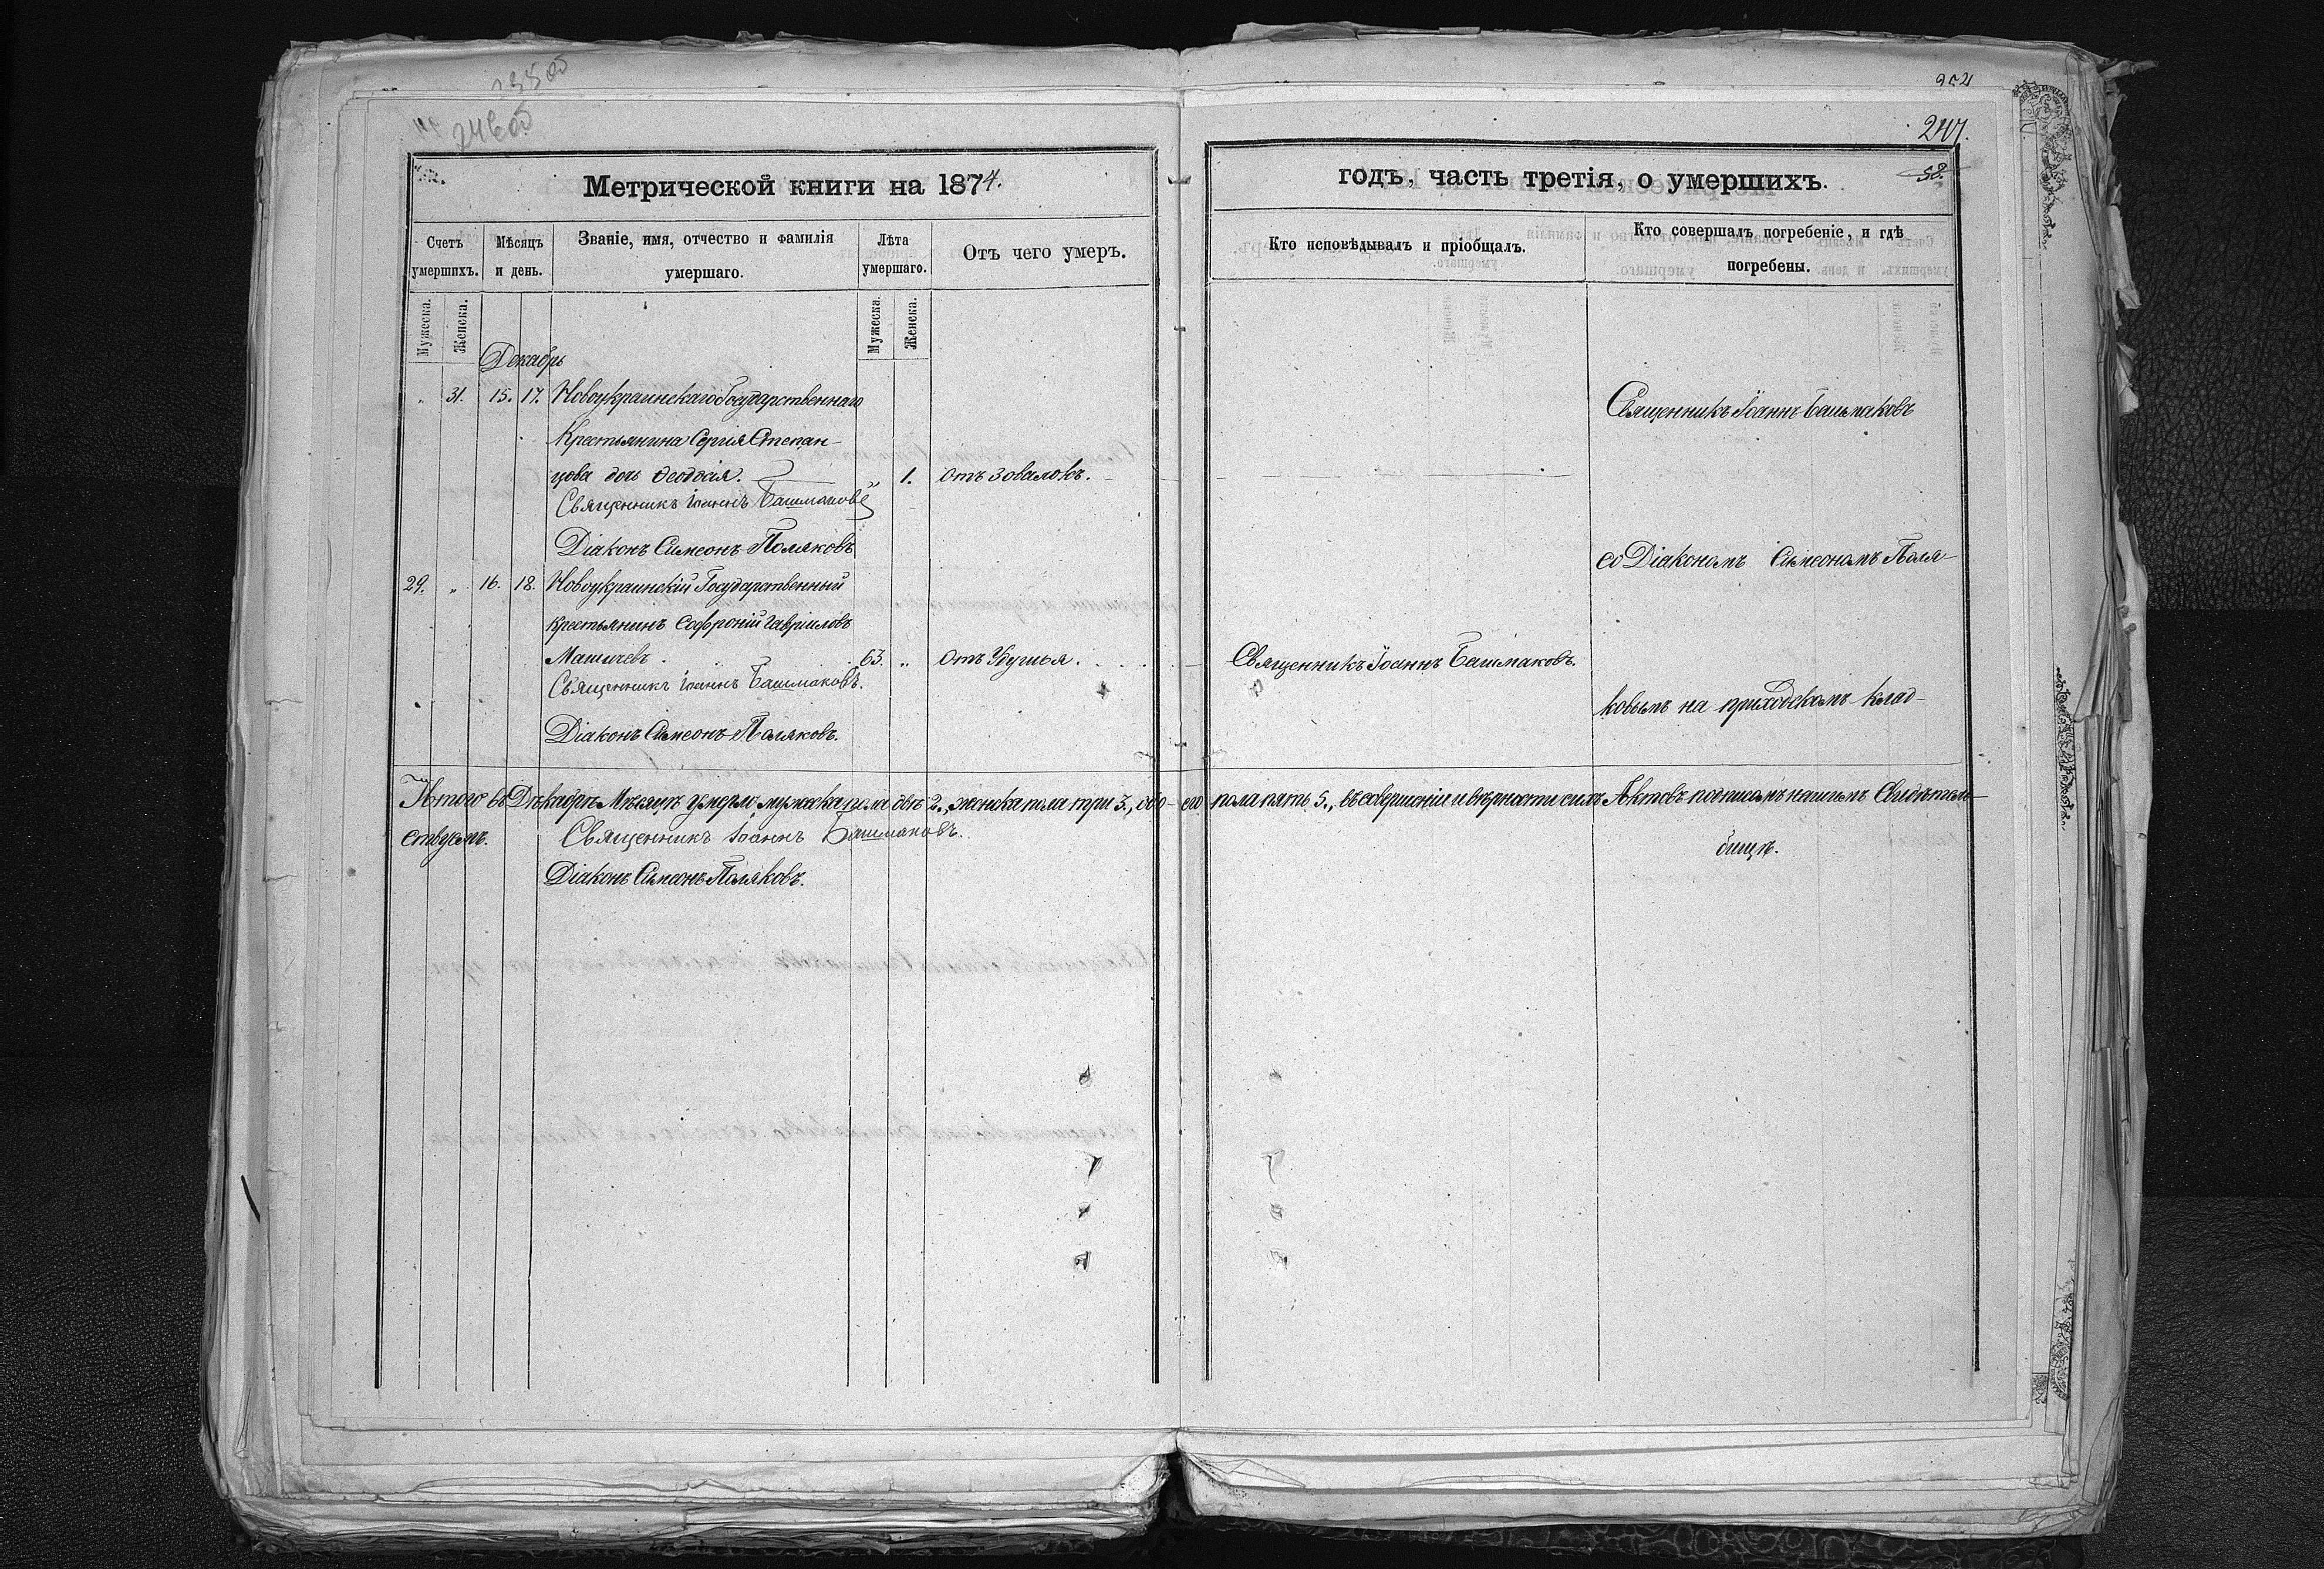 24600
247.
58.
Метрической книги на 1874.
годъ, часть третія, о умершихъ.
Счетъ умершихъ.
Мѣсяцъ и день.
Званіе, имя, отчество и фамилія умершаго.
Лѣта умершаго.
Отъ чего умеръ.
Кто исповѣдывалъ и пріобщалъ.
Кто совершалъ погребеніе, и гдѣ погребены.
Мужеска. Женска.
Мужеска. Женска.
Декабрь
„ 31. 15. 17. Новоукраинскаго Государственнаго
Крестьянина Сергія Степан-
цова дочь Ѳеодосія. „ 1. отъ Зовалокъ.
Священникъ Іоаннъ Башмаковъ
Діаконъ Симеонъ Поляковъ
29. „ 16. 18. Новоукраинскій Государственный
крестьянинъ Софроній Гавриловъ
63. „ отъ Удушья. Священникъ Іоаннъ Башмаковъ.
Священникъ Іоаннъ Башмаковъ.
Діаконъ Симеонъ Поляковъ.
Священникъ Іоаннъ Башмаковъ
со Діакономъ Симеономъ Поля-
ковымъ на приходскомъ клад-
бищѣ.
Итого въ Декабрѣ Мѣсяцѣ умерло мужеска пола двѣ 2., женска пола три 3., обо-его пола пять 5., въ совершеніи и вѣрности сихъ Актовъ подписомъ нашимъ Свидѣтель-
ствуемъ. Священникъ Іоаннъ Башмаковъ.
Діаконъ Симеонъ Поляковъ.